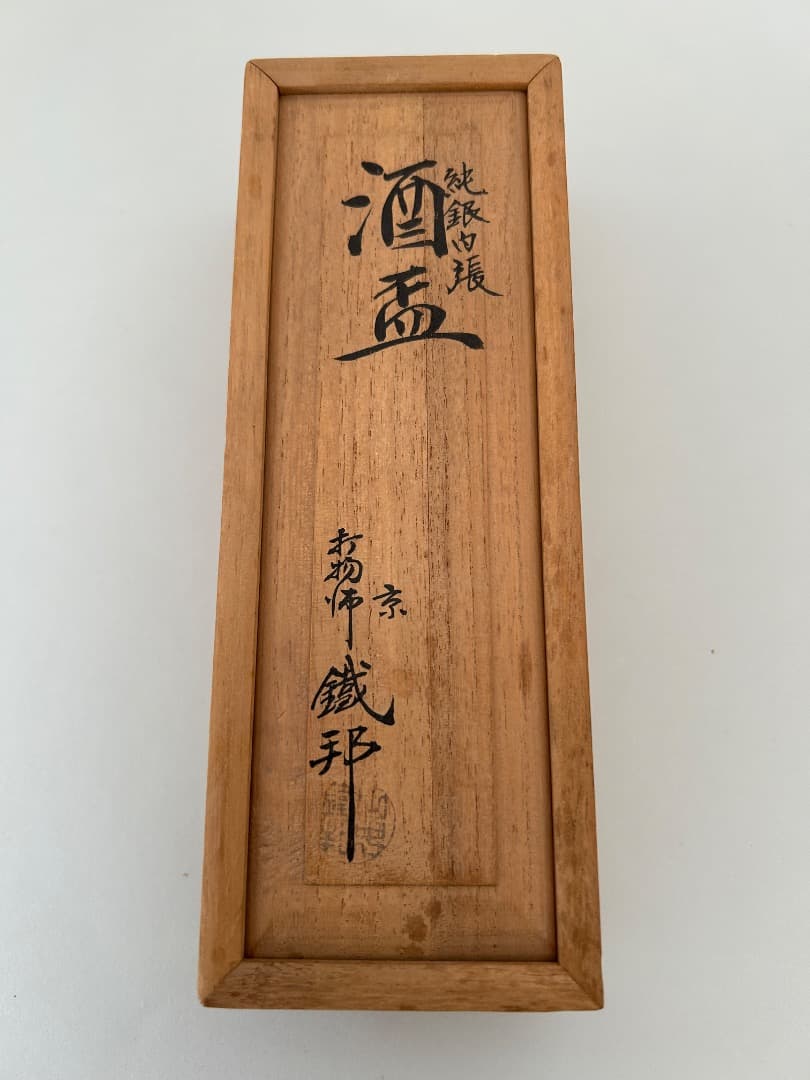 純銀内張
酒盃
京
打物師
鐵邦